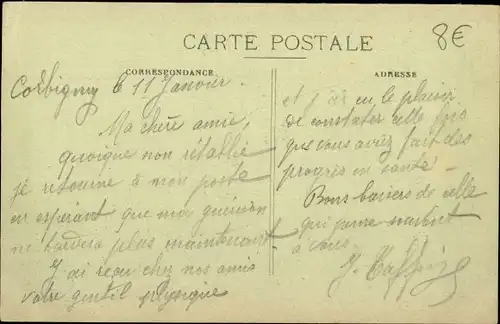 8€
CARTE POSTALE
CORRESPONDANCE
ADRESSE
Corbigny le 11 Janvier.
Ma chère amie,
quoique non rétablie
je retourne à mon poste
en espérant que ma guérison
ne tardera plus maintenant.
J'ai reçu chez nos amis
votre gentil physique
et j'ai eu le plaisir
de constater cette fois
que vous aviez fait des
progrès en santé.
Bons baisers de celle
qui pense souvent
à vous
J.